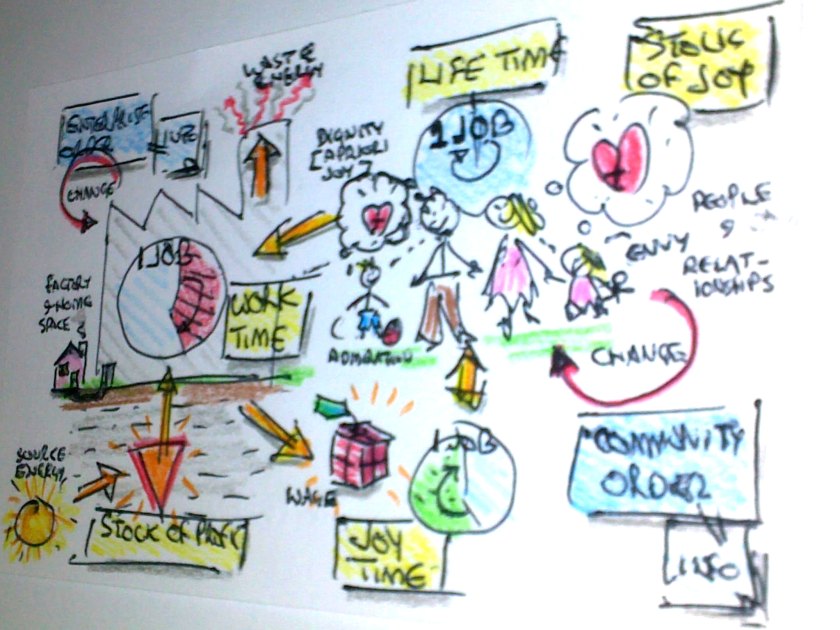 WASTE
ENERGY
LIFE TIME
OF JOY
ENTERPRISE
ORDER
INFO
CHANGE
DIGNITY
JOY
1 JOB
1 JOB
WORK
TIME
FACTORY
SPACE
ADMIRATION
ENVY
PEOPLE
&
RELAT-
IONSHIPS
CHANGE
SOURCE
ENERGY
STOCK OF
WAGE
1 JOB
JOY
TIME
COMMUNITY
ORDER
INFO